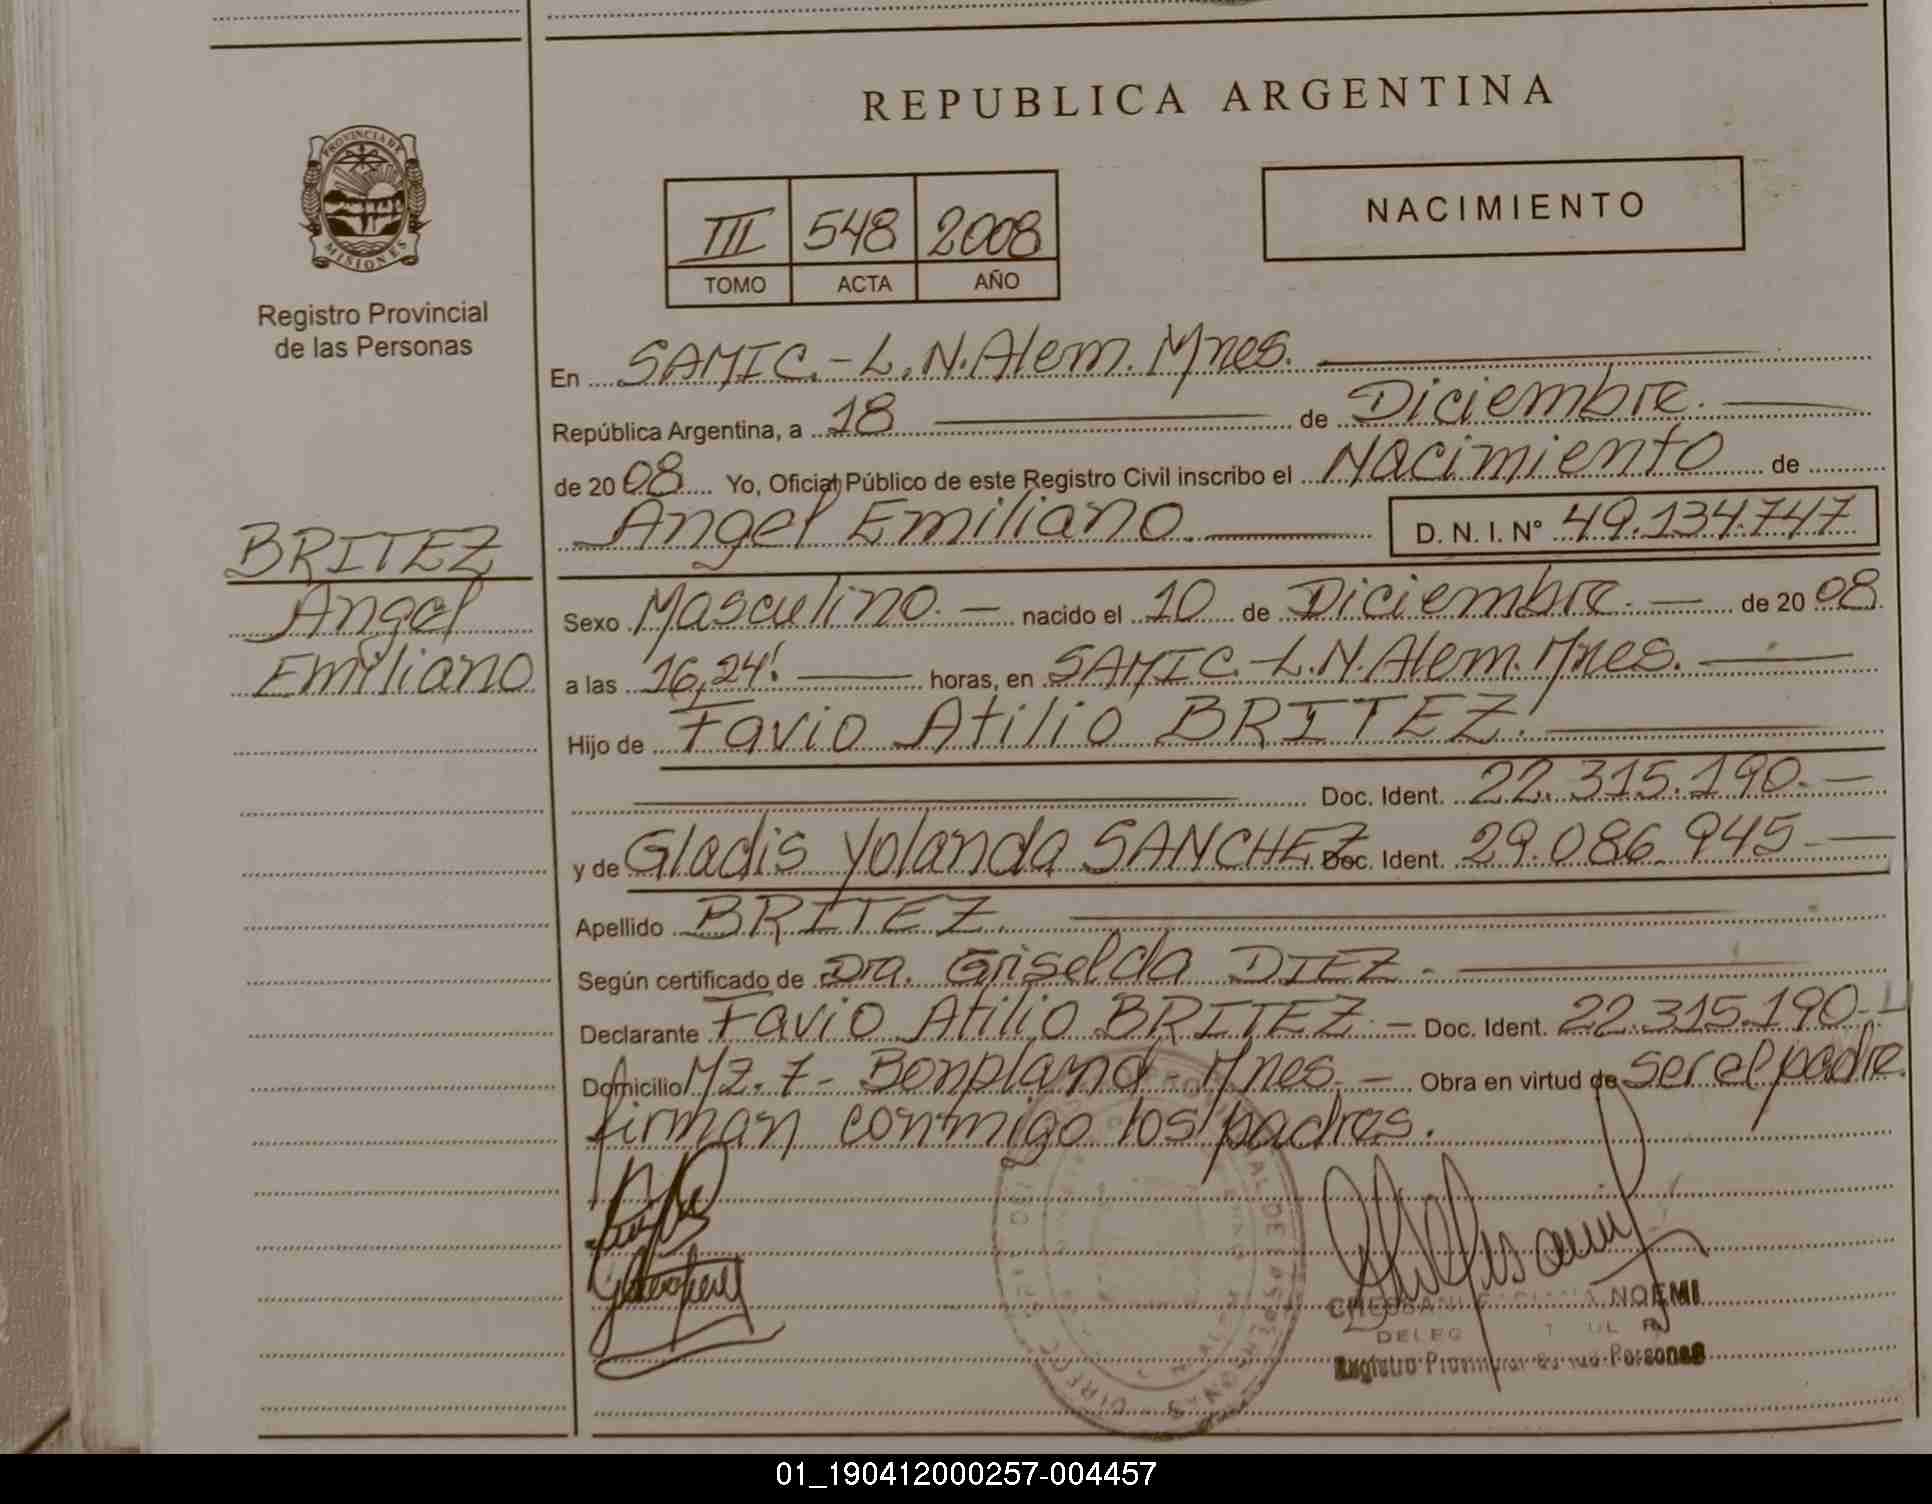 REPUBLICA ARGENTINA
PROVINCIA DE
MISIONES
Registro Provincial
de las Personas
III 548 2008
TOMO ACTA AÑO
NACIMIENTO
En SAMIC.-L.N.Alem.Mnes.
República Argentina, a 18 de Diciembre.
de 2008 Yo, Oficial Público de este Registro Civil inscribo el Nacimiento de
Angel Emiliano. D. N. I. N° 49.134.747
BRITEZ
Angel
Emiliano
Sexo Masculino. nacido el 10 de Diciembre. de 2008
a las 16,24' horas, en SAMIC.-L.N.Alem.Mnes.
Hijo de Favio Atilio BRITEZ.
Doc. Ident. 22.315.190.-
y de Gladis Yolanda SANCHEZ Doc. Ident. 29.086.945-
Apellido BRITEZ.
Según certificado de Dra. Griselda DIEZ.
Declarante Favio Atilio BRITEZ.- Doc. Ident. 22.315.190-
Domicilio Mz.7- Bonpland-Mnes.- Obra en virtud de ser el padre.
firman conmigo los padres.
NOEMI
Registro Provincial de las Personas
01_190412000257-004457